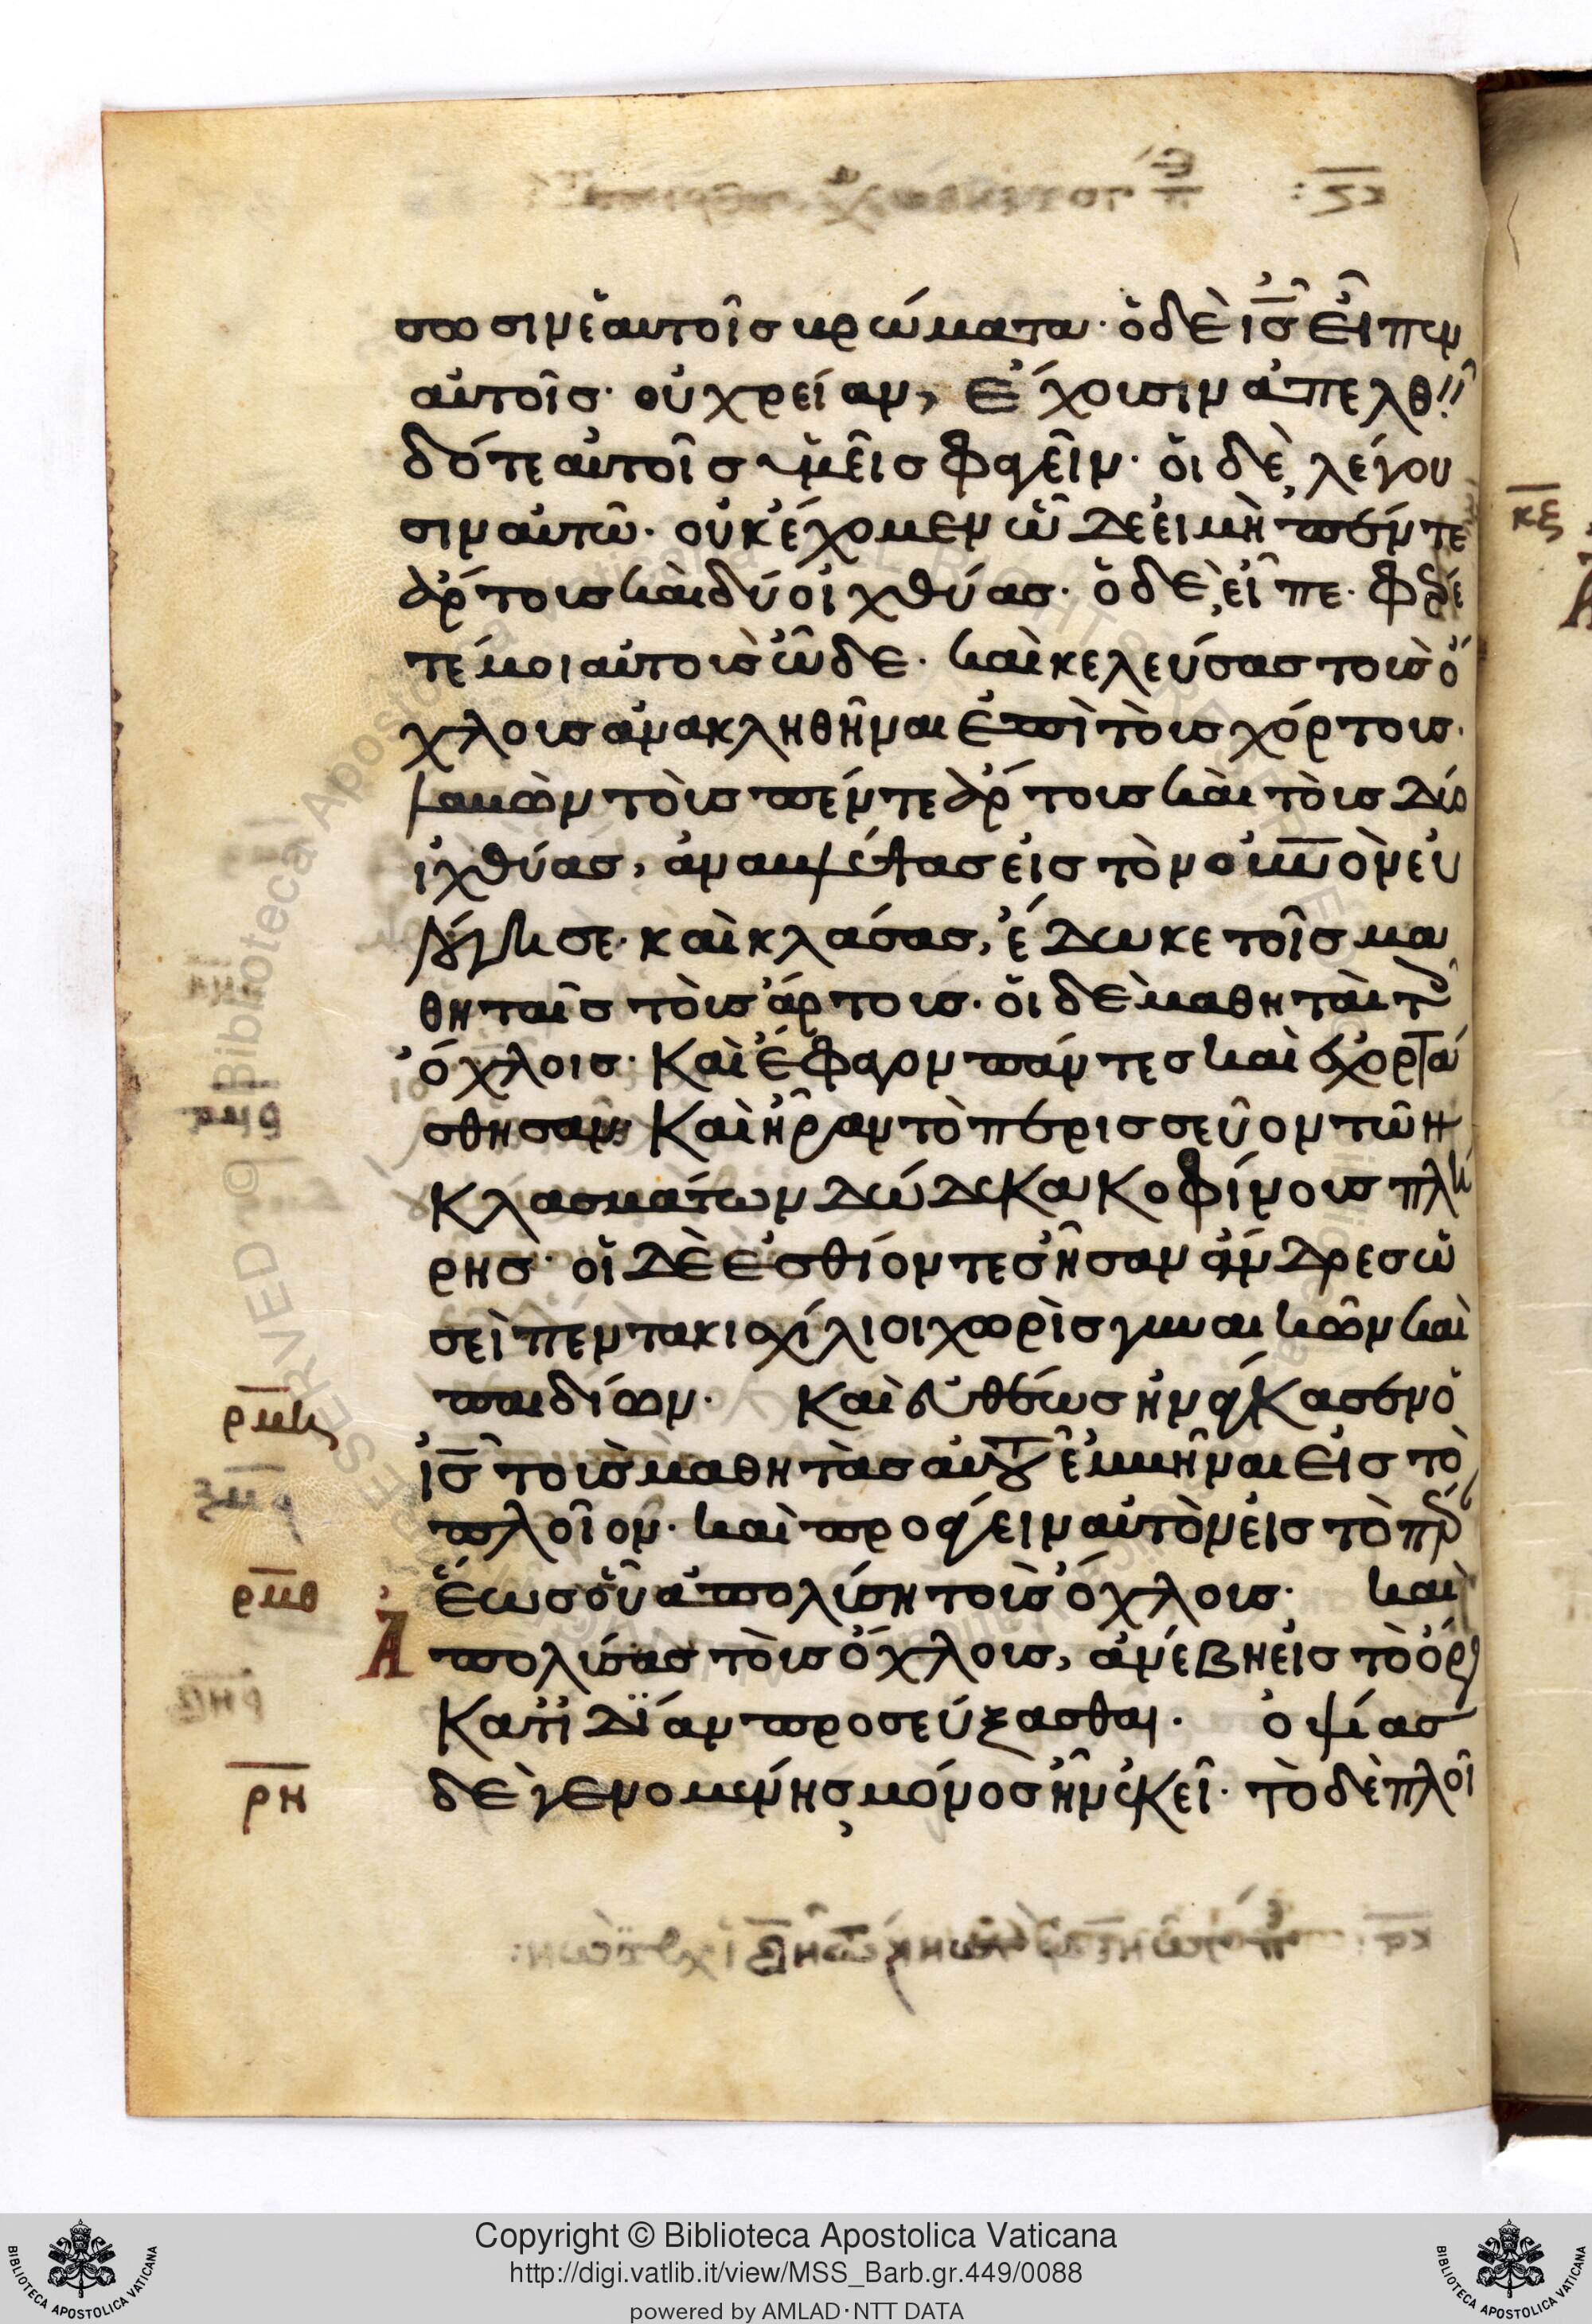 σωσιν ἑαυτοῖς βρώματα· ὁ δὲ ις̅ εἶπεν
αὐτοῖς· οὐ χρείαν, ἔχουσιν ἀπελθ
δότε αὐτοῖς ὑμεῖς φαγεῖν· οἱ δὲ λέγου
σιν αὐτῶ· οὐκ ἔχομεν ὧδε εἰ μὴ πέντε
ἄρτους καὶ δύο ἰχθύας· ὁ δὲ, εἶπε· φέρε
τέ μοι αὐτοὺς ὧδε· καὶ κελεύσας τοὺς ὄ
χλους ἀνακληθῆναι ἐπὶ τοὺς χόρτους·
λαβὼν τοὺς πέντε ἄρτους καὶ τοὺς δύο
ἰχθύας, ἀναβλέψας εἰς τὸν οὐνο̅ν εὐ
λόγησε· καὶ κλάσας, ἔδωκε τοῖς μα
θηταῖς τοὺς ἄρτους· οἱ δὲ μαθηταὶ τ
ὄχλοις· Καὶ ἔφαγον πάντες καὶ ἐχορτά
σθησαν· Καὶ ἦραν τὸ περισσεῦον τῶν
κλασμάτων δώδεκα κοφίνους πλή
ρης· οἱ δὲ ἐσθίοντες ἦσαν ἄνδρες ὡ
σεὶ πεντακισχίλιοι χωρὶς γυναικῶν καὶ
παιδίων· Καὶ εὐθέως ἠνάγκασεν ὁ
ρμζ
ις̅ τοὺς μαθητὰς αὐτοῦ ἐμβῆναι εἰς τὸ
πλοῖον· καὶ προάγειν αὐτὸν εἰς τὸ πέρ
ἕως οὗ ἀπολύση τοὺς ὄχλους· καὶ
ρμθ
Ἀπολύσας τοὺς ὄχλους, ἀνέβη εἰς τὸ ὄρος
κατ ϊδίαν προσεύξασθαι· ὀψίας
δὲ γενομένης, μόνος ἦν ἐκεῖ· τὸ δὲ πλοῖ
ρν
κξ
Copyright © Biblioteca Apostolica Vaticana
http://digi.vatlib.it/view/MSS_Barb.gr.449/0088
powered by AMLAD·NTT DATA
BIBLIOTECA APOSTOLICA VATICANA
BIBLIOTECA APOSTOLICA VATICANA